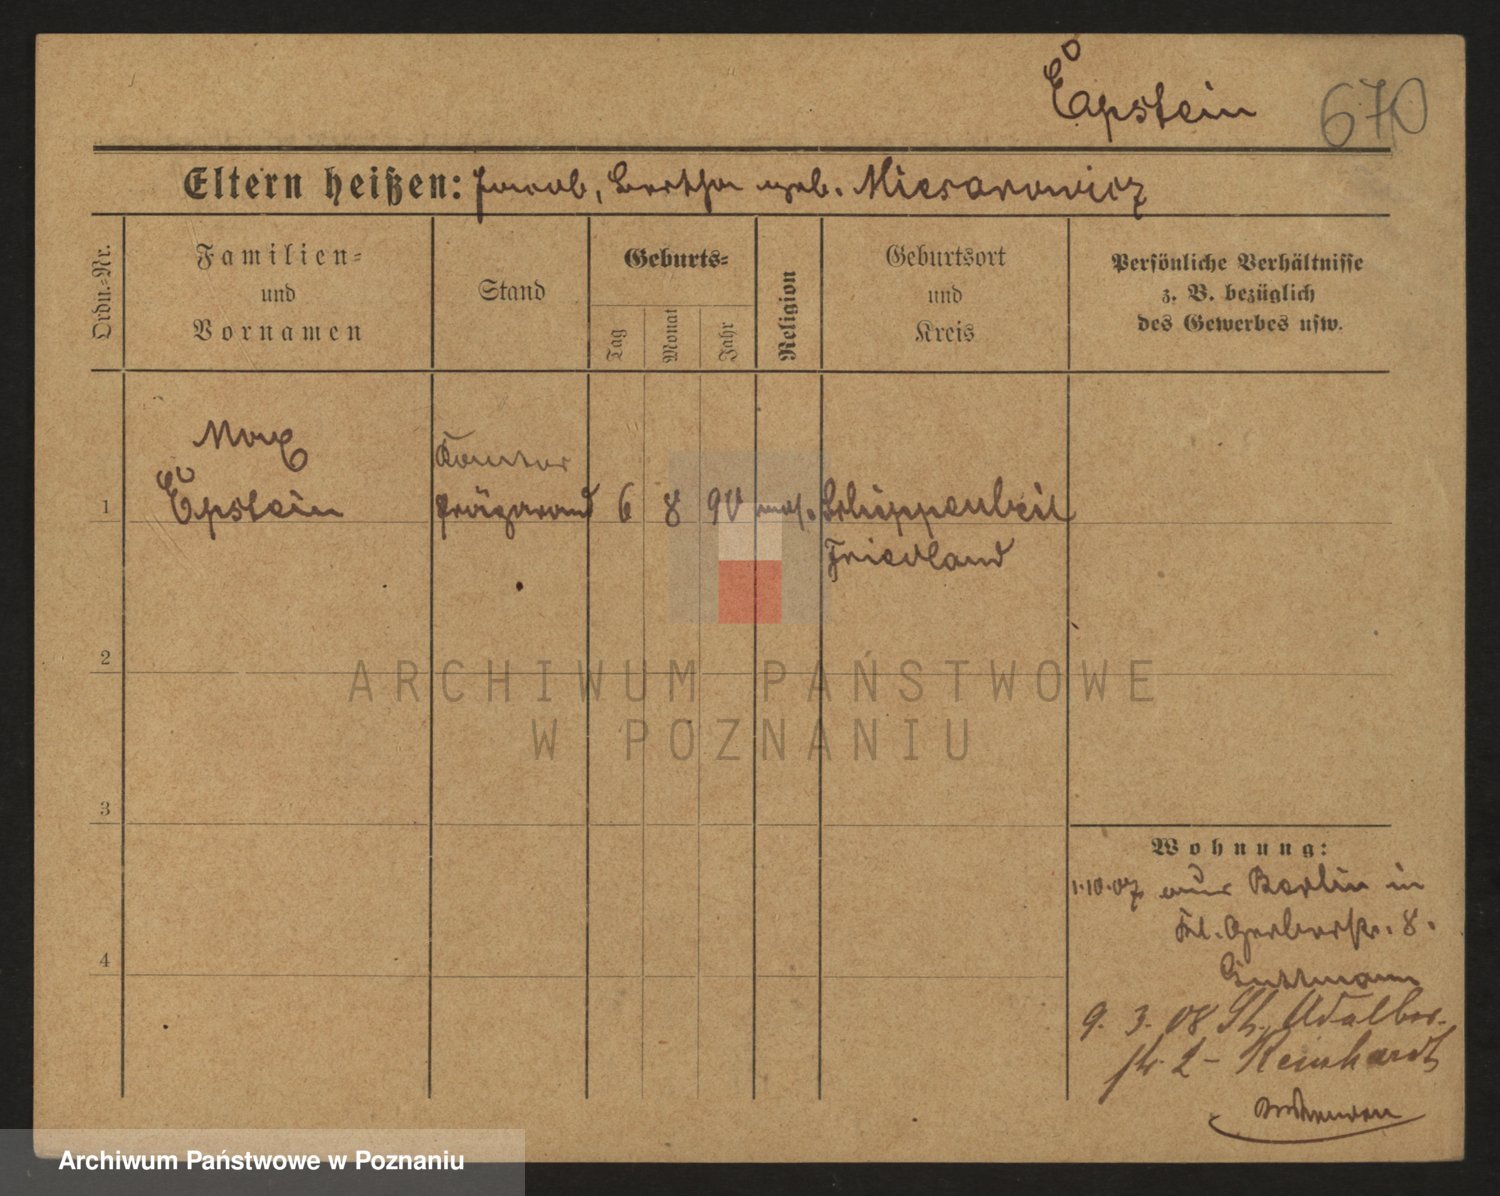 Epstein 670
Eltern heißen: Jacob, Bertha geb. Miesarowicz
Ordn.-Nr.
Familien-
und
Vornamen
Stand
Geburts-
Tag
Monat
Jahr
Religion
Geburtsort
und
Kreis
Persönliche Verhältnisse
z. B. bezüglich
des Gewerbes usw.
Max
Kantor
1 Epstein Präparand 6 8 90 mos. Schippenbeil
Friedland
2
ARCHIWUM PAŃSTWOWE
W POZNANIU
3
Wohnung:
1.10.07 aus Berlin in
Kl. Gerberstr. 8.
Guttmann
4
9. 3. 08 St. Adalber-
str 2 - Reinhardt
Archiwum Państwowe w Poznaniu